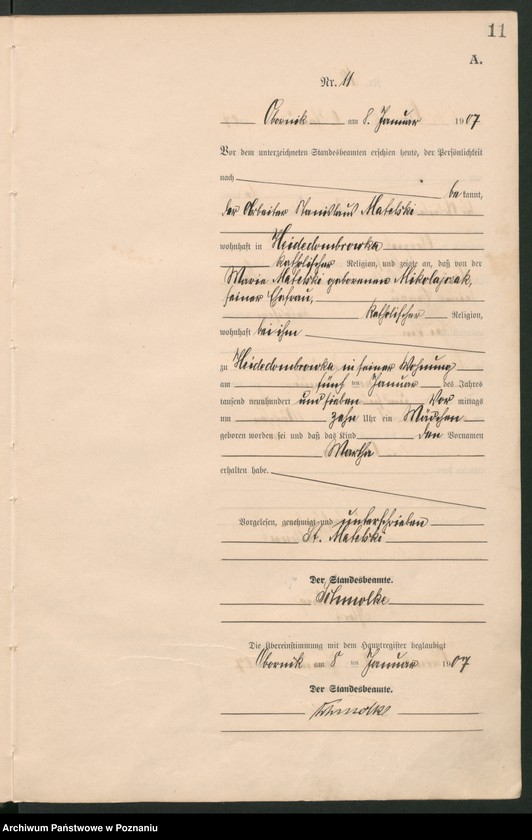 11
A.
Nr. 11
Obornik am 8. Januar 1907
Vor dem unterzeichneten Standesbeamten erschien heute, der Persönlichkeit
nach
be kannt,
der Arbeiter Stanislaus Matelski
wohnhaft in Heidedombrowka
katholischer Religion, und zeigte an, daß von der
Marie Matelski geborenen Mikolajczak,
seiner Ehefrau,
katholischer Religion,
wohnhaft bei ihm
zu Heidedombrowka in seiner Wohnung
am fünf ten Januar des Jahres
tausend neunhundert und sieben Vor mittags
um zehn Uhr ein Mädchen
geboren worden sei und daß das Kind den Vornamen
Martha
erhalten habe.
Vorgelesen, genehmigt und unterschrieben
St. Matelski
Der Standesbeamte.
Schmolke
Die Übereinstimmung mit dem Hauptregister beglaubigt
Obornik am 8 ten Januar 1907
Der Standesbeamte.
Schmolke
Archiwum Państwowe w Poznaniu